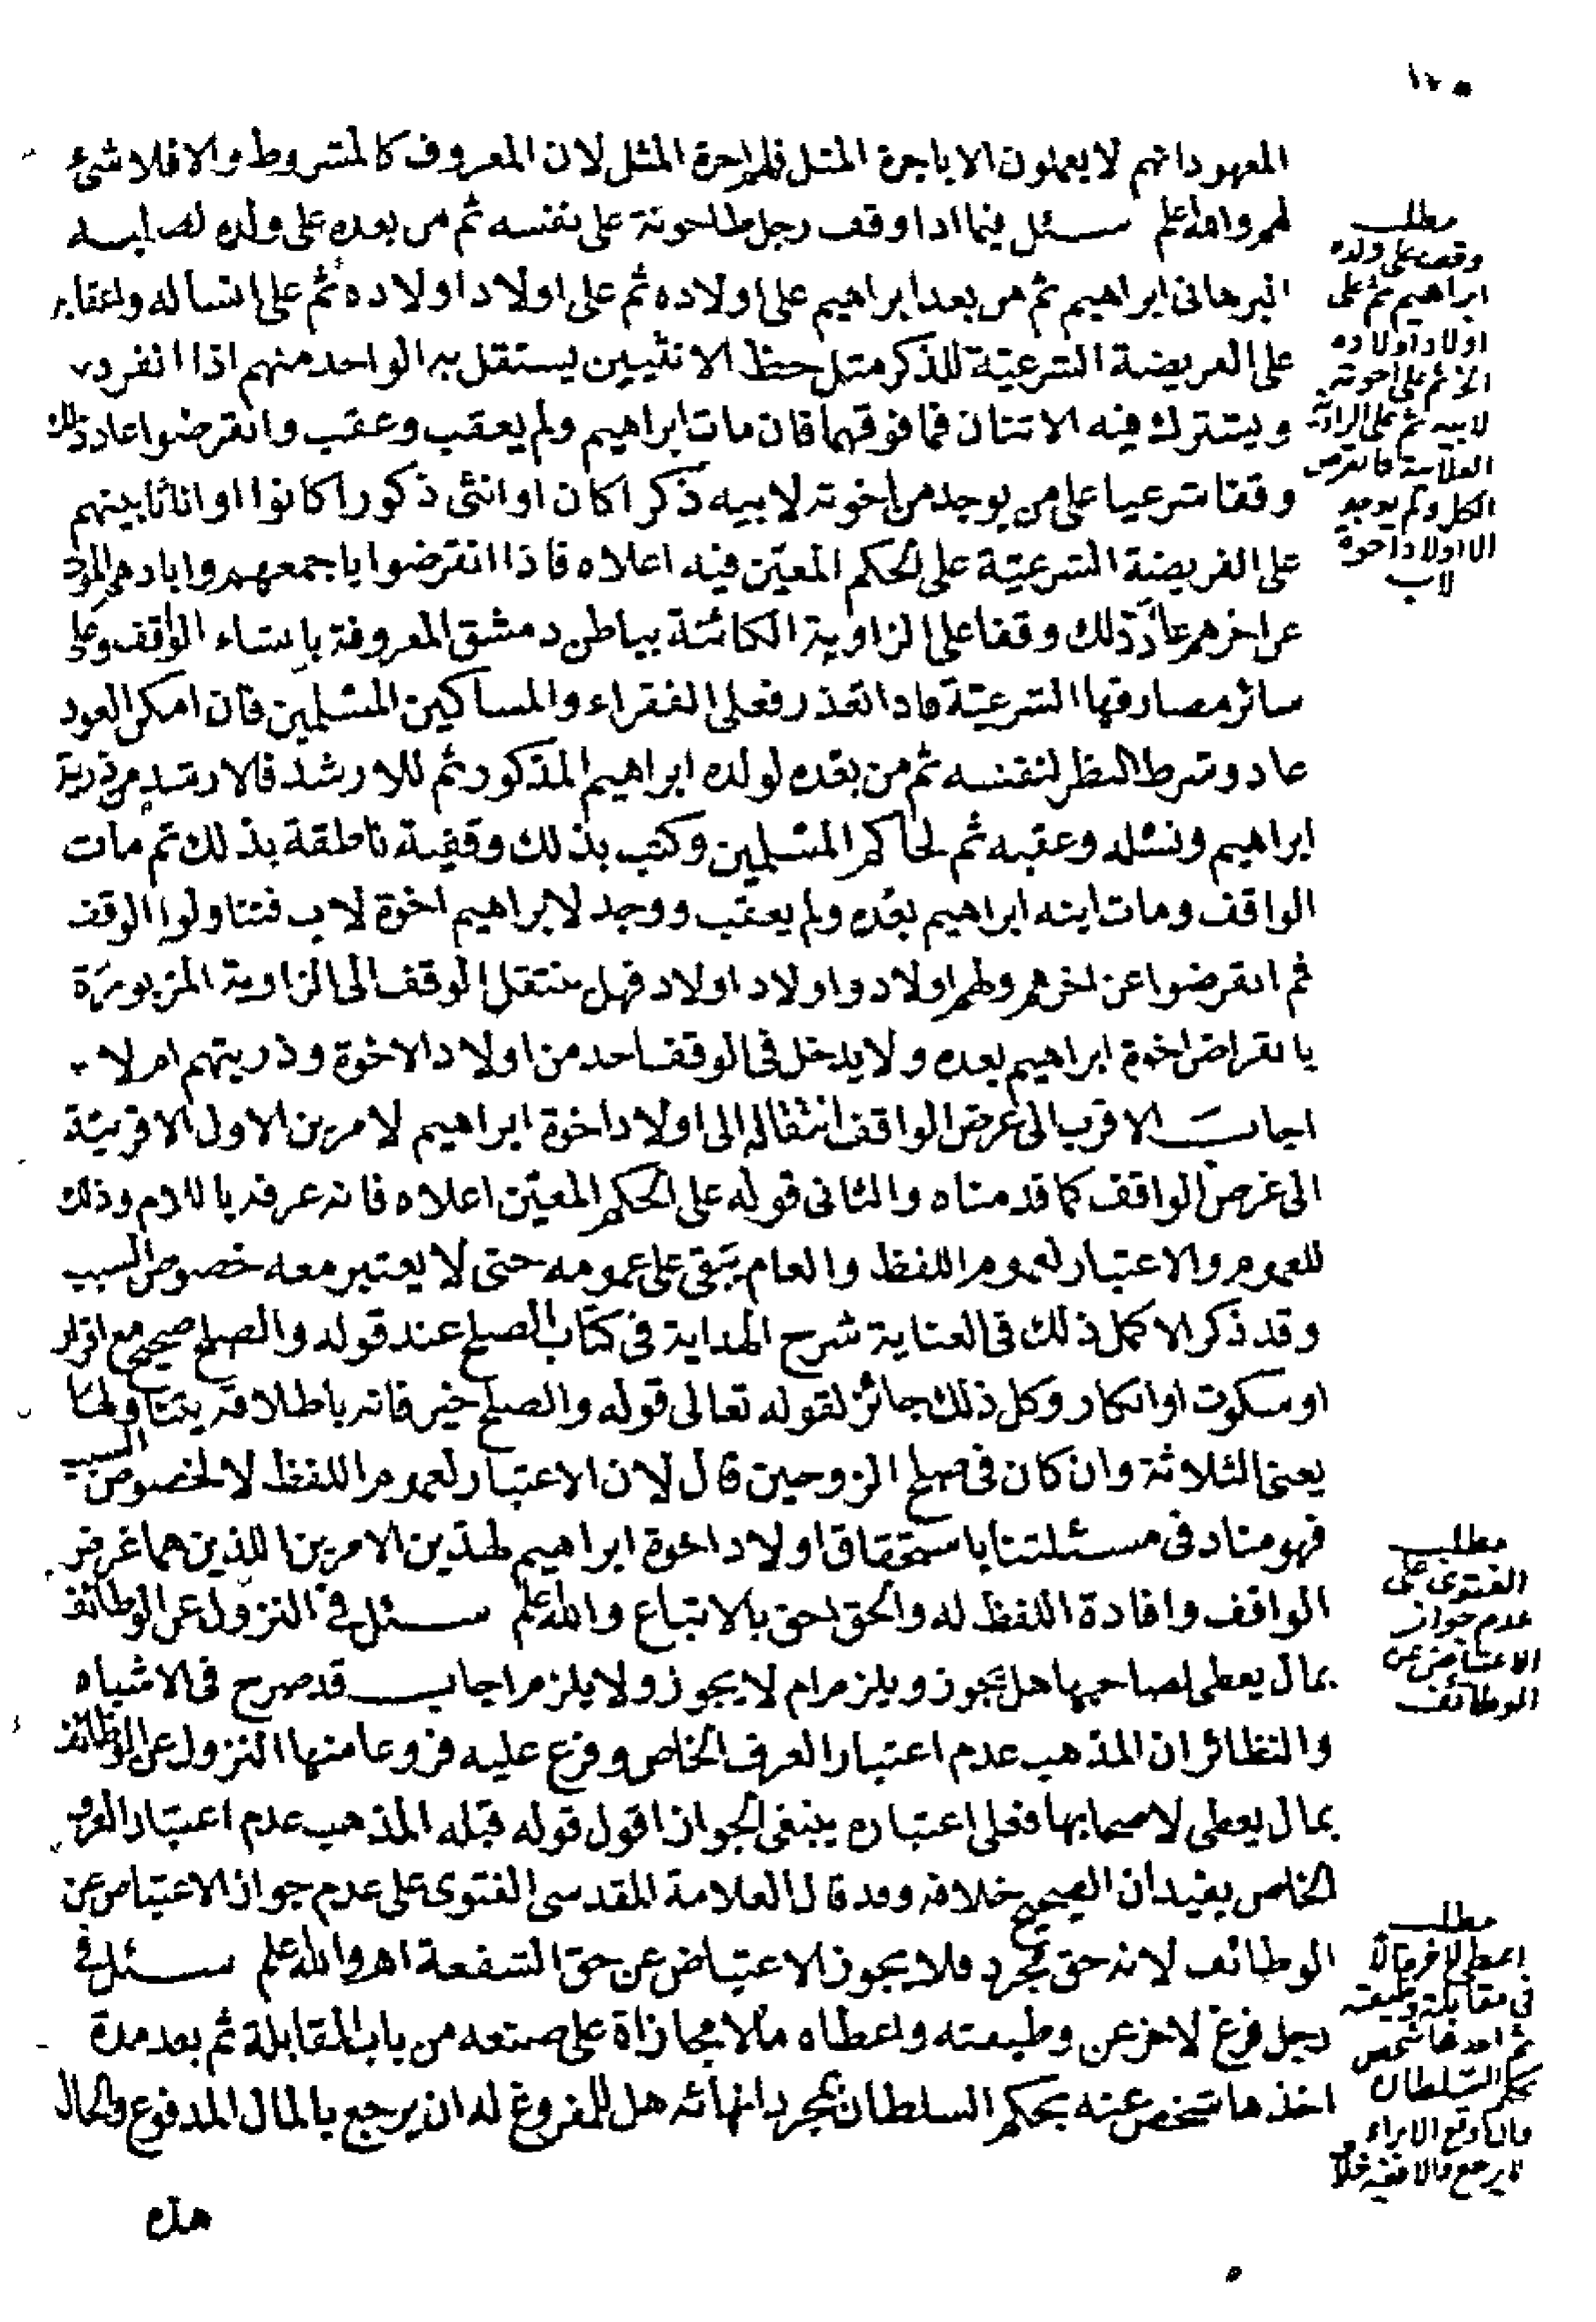 ١٢٠
المعهود انهم لا يعملون الا باجرة المثل فلهم اجرة المثل لان المعروف كالمشروط والا فلا شئ
لهم والله اعلم سئل فيما اذا وقف رجل طاحونة على نفسه ثم من بعده على ولده لصلبه
البرهانى ابراهيم ثم من بعد ابراهيم على اولاده ثم على اولاد اولاده ثم على انساله واعقابه
على الفريضة الشرعيّة للذكر مثل حظ الانثيين يستقل به الواحد منهم اذا انفرد
ويشترك فيه الاثنان فما فوقهما فان مات ابراهيم ولم يعقب وعقب وانقرضوا عاد ذلك
وقفا شرعيا على من يوجد من اخوته لابيه ذكرا كان او انثى ذكورا كانوا او اناثا بينهم
على الفريضة الشرعيّة على الحكم المعيّن فيه اعلاه فاذا انقرضوا باجمعهم وابادهم الموت
عن اخرهم عاد ذلك وقفا على الزاوية الكائنة بباطن دمشق المعروفة بانشاء الواقف وعلى
سائر مصارفها الشرعيّة فاذا تعذر فعلى الفقراء والمساكين المسلمين فان امكن العود
عاد وشرط النظر لنفسه ثم من بعده لولده ابراهيم المذكور ثم للارشد فالارشد من ذرية
ابراهيم ونسله وعقبه ثم لحاكم المسلمين وكتب بذلك وقفية ناطقة بذلك ثم مات
الواقف ومات ابنه ابراهيم بعده ولم يعقب ووجد لابراهيم اخوة لاب فتناولوا الوقف
ثم انقرضوا عن اخرهم ولهم اولاد واولاد اولاد فهل ينتقل الوقف الى الزاوية المزبورة
بانقراض اخوة ابراهيم بعده ولا يدخل فى الوقف احد من اولاد الاخوة وذريتهم ام لا
اجاب الاقرب الى غرض الواقف انتقاله الى اولاد اخوة ابراهيم لامرين الاول الاقربيّة
الى غرض الواقف كما قدمناه والثانى قوله على الحكم المعيّن اعلاه فانه عرفه باللام وذلك
للعموم والاعتبار لعموم اللفظ والعام يبقى على عمومه حتى لا يعتبر معه خصوص السبب
وقد ذكر الاكمل ذلك فى العناية شرح الهداية فى كتاب الصلح عند قوله والصلح صحيح مع اقرار
او سكوت او انكار وكل ذلك جائز لقوله تعالى قوله والصلح خير فانه باطلاقه يتناولها
يعنى الثلاثة وان كان فى صلح الزوجين قال لان الاعتبار لعموم اللفظ لا لخصوص السبب
فهو مناد فى مسئلتنا باستحقاق اولاد اخوة ابراهيم لهذين الامرين اللذين هما غرض
الواقف وافادة اللفظ له والحق احق بالاتباع والله اعلم سئل فى النزول عن الوظائف
بمال يعطى لصاحبها هل يجوز ويلزم ام لا يجوز ولا يلزم اجاب قد صرح فى الاشباه
والنظائر ان المذهب عدم اعتبار العرف الخاص وفرع عليه فروعا منها النزول عن الوظائف
بمال يعطى لاصحابها فعلى اعتباره ينبغى الجواز اقول قوله قبله المذهب عدم اعتبار العرف
الخاص يفيد ان الصحيح خلافه وقد قال العلامة المقدسى الفتوى على عدم جواز الاعتياض عن
الوظائف لانه حق مجرد فلا يجوز الاعتياض عن حق الشفعة اهـ والله اعلم سئل فى
رجل فرغ لاخر عن وظيفته واعطاه مالا مجازاة على صنعه من باب المقابلة ثم بعد مدة
اخذها شخص عنه بحكم السلطان بمجرد انهائه هل للمفروغ له ان يرجع بالمال المدفوع والحال
هذه
مطلب
وقف على ولده
ابراهيم ثم على
اولاد اولاده
الخ ثم على اخوته
لابيه ثم على الزاوية
الفلانية فانقرض
الكل ولم يوجد
الا اولاد اخوة
لاب
مطلب
الفتوى على
عدم جواز
الاعتياض عن
الوظائف
مطلب
اعطى لاخر مالا
فى مقابلة وظيفته
ثم اخذها شخص
بحكم السلطان
فان وقع الابراء
لا يرجع والا ففيه خلاف